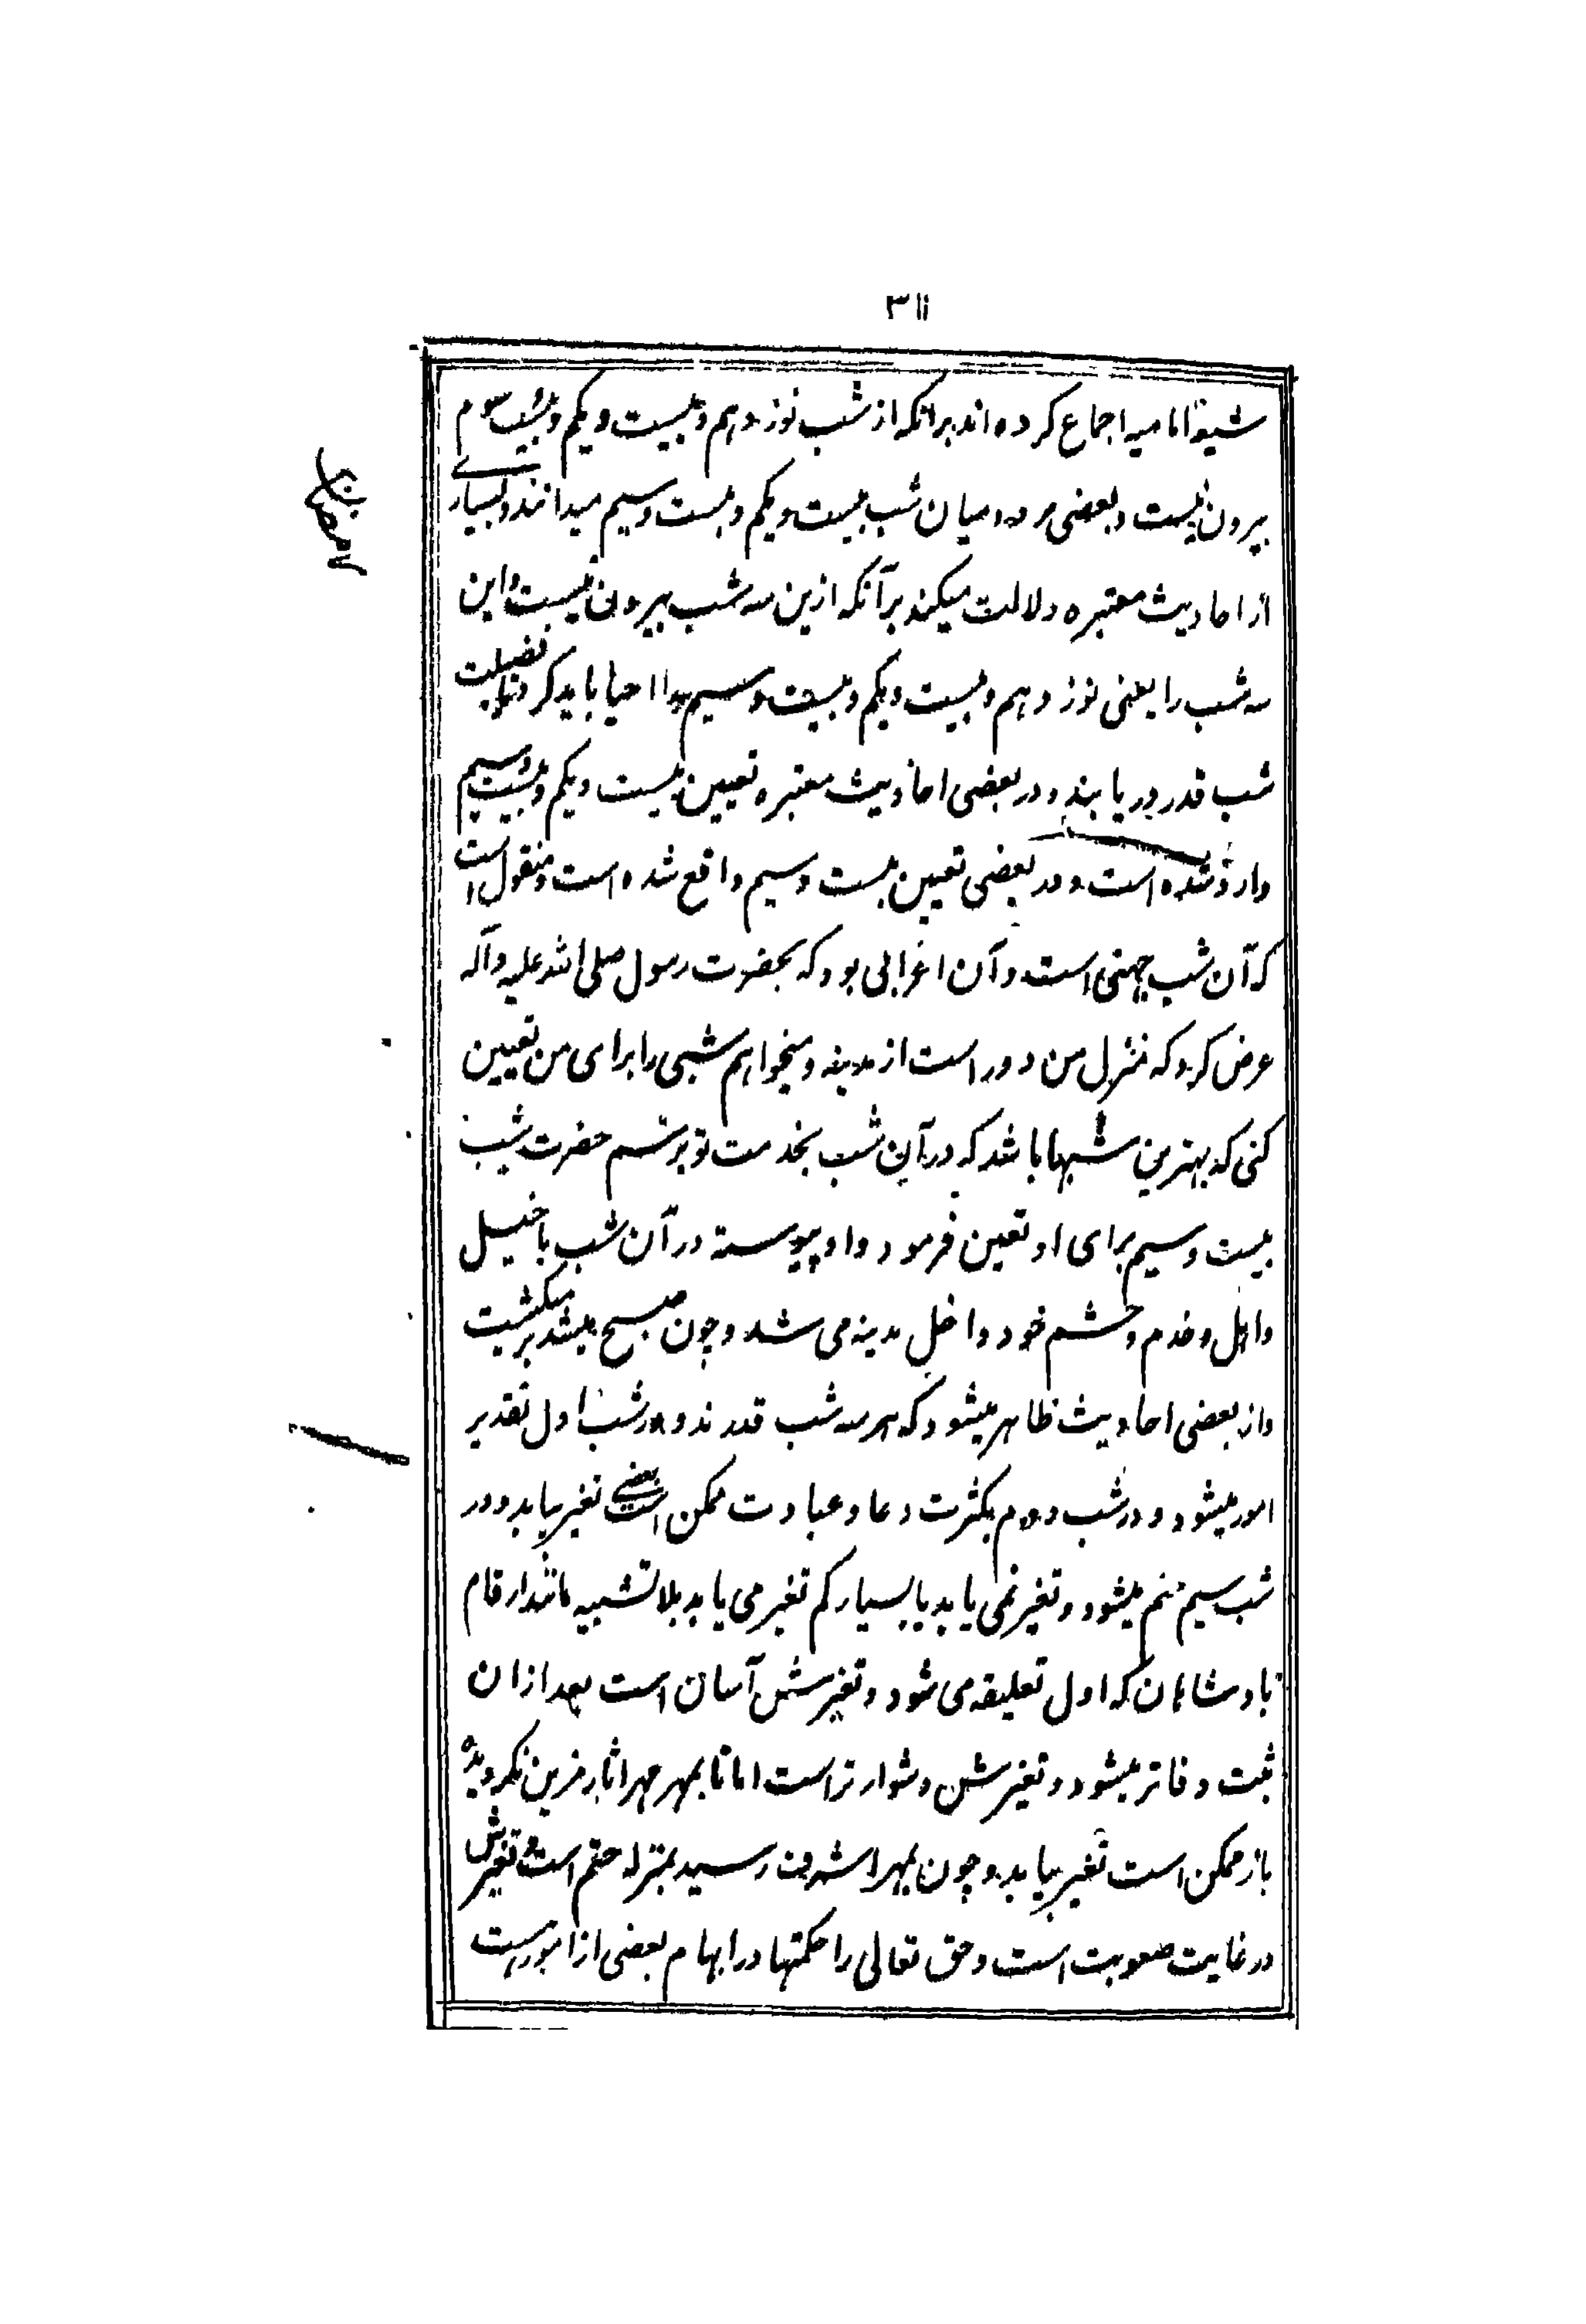 ۳۱۱
شیعۀ امامیه اجماع کرده اند برانکه از شب نوزدهم و بیست و یکم و بیست سوم
بیرون نیست و بعضی مردد میان شب بیست و یکم و بست و سیم میدانند و بسیارے
از احادیث معتبره دلالت میکند بر آنکه ازین سه شب بیرون نیست و این
سه شب را یعنی نوزدهم و بیست و یکم و بیست و سیم را احیا باید کرد تا فضیلت
شب قدر دریابند و در بعضی احادیث معتبره تعیین بیست و یکم و بیست و سیم
وارد شده است و در بعضی تعیین بیست و سیم واقع شده است و منقول است
که آن شب جهنی است و آن اعرابی بود که بحضرت رسول صلی الله علیه و آله
عرض کرد که منزل من دور است از مدینه و میخواهم شبی را برای من تعیین
کنی که بهترین شبها باشد که در آن شب بخدمت تو برسم حضرت شب
بیست و سیم برای او تعین فرمود و او پیوسته در آن شب با خیل
و اهل و خدم و حشم خود داخل مدینه می شد و چون صبح میشد بر میگشت
و از بعضی احادیث ظاهر میشود که هر سه شب قدرند و در شب اول تقدیر
امور میشود و در شب دوم بکثرت دعا و عبادت ممکن است بعضے تغیر بیابد و در
شب سیم متم میشود و تغیر نمی یابد یا بسیار کم تغیر می یابد بلا تشبیه مانند ارقام
بادشاهان که اول تعلیقه می شود و تغیرش آسان است بعد ازان
ثبت دفاتر میشود و تغیرش دشوار تر است اما تا بمهر مهر اثار مزین نگردیده
باز ممکن است تغیر بیابد و چون بمهر اشرف رسید بمنزله حتم است و تغیرش
در غایت صعوبت است و حق تعالی را حکمتها در ابهام بعضی از امور هست